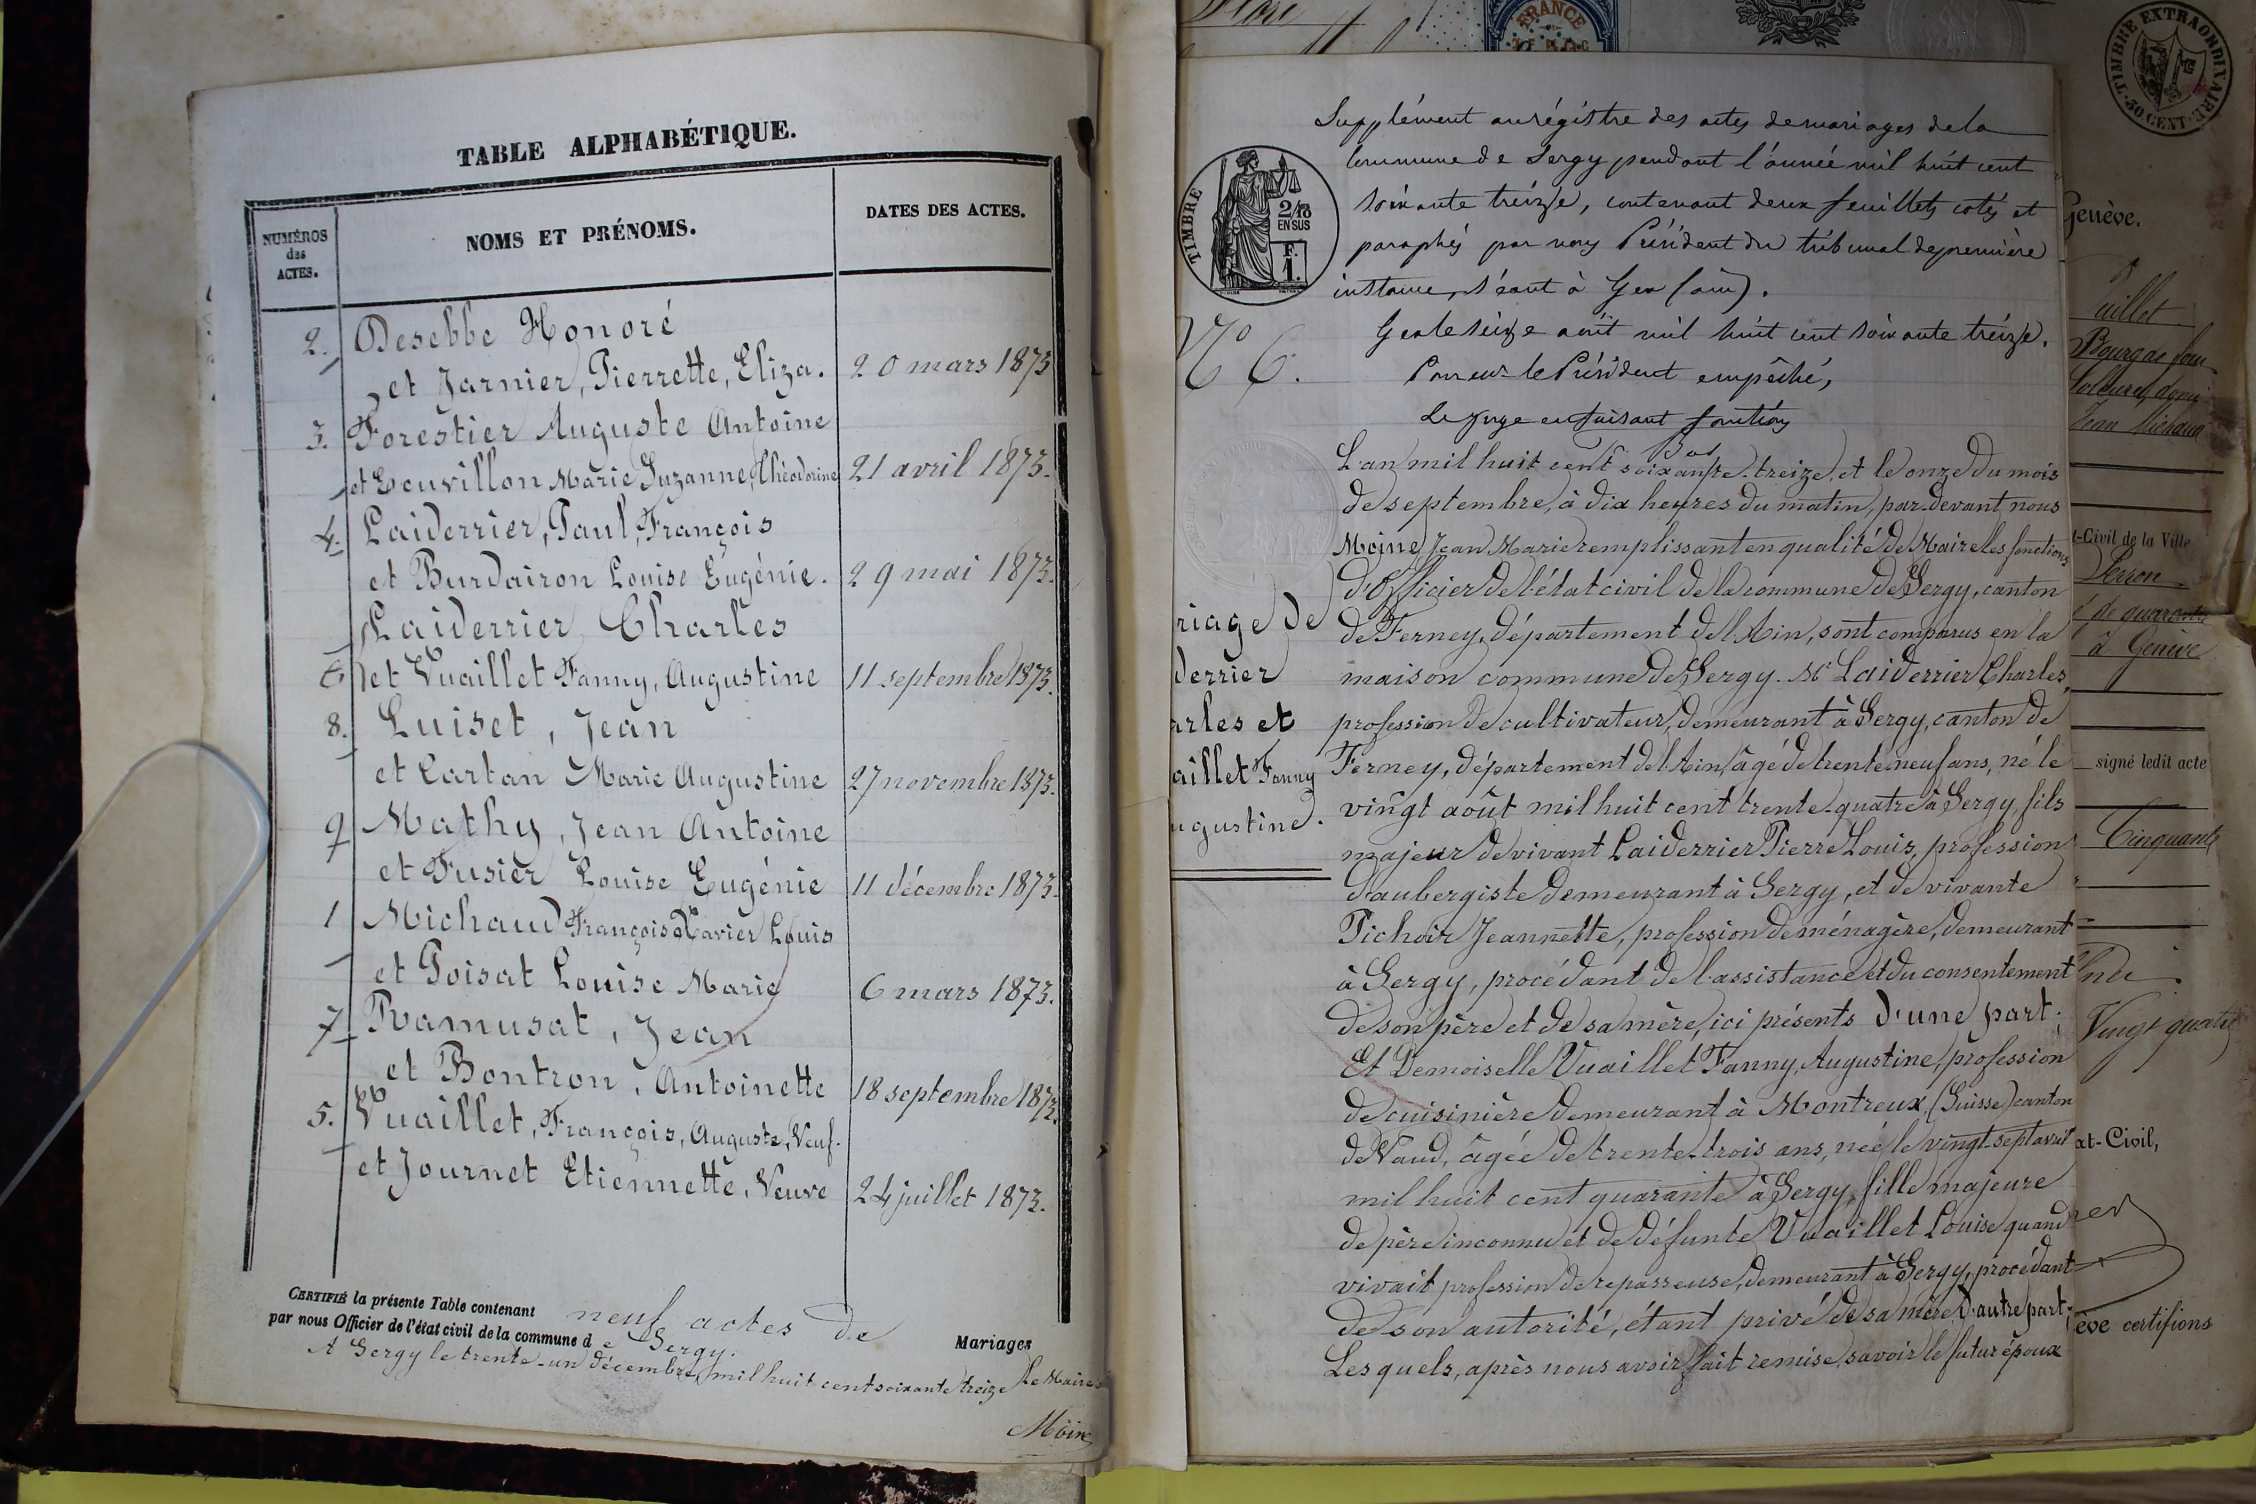 TABLE ALPHABÉTIQUE.
NUMÉROS des ACTES.
NOMS ET PRÉNOMS.
DATES DES ACTES.
2. Desebbe Honoré
et Jarnier, Pierrette, Eliza. 20 mars 1873
3. Forestier Auguste Antoine
et Ecuvillon Marie Suzanne, Théodorine 21 avril 1873.
4. Laiderrier, Paul, François
et Burdairon Louise Eugénie. 29 mai 1873.
Laiderrier Charles
6 et Vuaillet Fanny, Augustine 11 septembre 1873.
8. Luiset, Jean
et Cartan Marie Augustine 27 novembre 1873.
9 Mathy, Jean Antoine
et Fusier Louise Eugénie 11 décembre 1873.
1 Michaud François Xavier Louis
et Poisat Louise Marie 6 mars 1873.
7 Ramusat, Jean
et Bontron, Antoinette 18 septembre 1873.
5. Vuaillet, François, Auguste, Veuf.
et Journet Etiennette, Veuve 24 juillet 1873.
CERTIFIÉ la présente Table contenant neuf actes de Mariages
par nous Officier de l'état civil de la commune de Sergy.
A Sergy le trente-un décembre, mil huit cent soixante treize Le Maire
Moine
FRANCE
Supplément au régistre des actes de mariages de la
commune de Sergy pendant l'année mil huit cent
soixante treize, contenant deux feuillets cotés et
paraphés par nous Président du tribunal de première
instance, séant à Gex (ain).
Gex le seize août mil huit cent soixante treize.
Pour le Président empêché,
Le juge en faisant fonctions
TIMBRE
2/10
EN SUS
F.
1.
N° 6.
riage de
derrier
rles et
aillet Fanny
ugustine.
L'an mil huit cent soixante-treize, et le onze du mois
de septembre, à dix heures du matin, par-devant nous
Moine Jean Marie remplissant en qualité de Maire les fonctions
d'Officier de l'état civil de la commune de Sergy, canton
de Ferney, département de l'Ain, sont comparus en la
maison commune de Sergy. Mr Laiderrier Charles,
profession de cultivateur, demeurant à Sergy, canton de
Ferney, département de l'Ain, âgé de trente neuf ans, né le
vingt août mil huit cent trente-quatre à Sergy, fils
majeur de vivant Laiderrier Pierre Louis, profession
d'aubergiste demeurant à Sergy, et de vivante
Pichoir Jeannette, profession de ménagère, demeurant
à Sergy, procédant de l'assistance et du consentement
de son père et de sa mère, ici présents d'une part;
Et Demoiselle Vuaillet Fanny, Augustine, profession
de cuisinière demeurant à Montreux (Suisse) canton
de Vaud, âgée de trente-trois ans, née le vingt-sept avril
mil huit cent quarante à Sergy, fille majeure
de père inconnu et de défunte Vuaillet Louise quand
vivait profession de repasseuse, demeurant à Sergy, procédant
de son autorité, étant privé de sa mère d'autre part;
Les quels, après nous avoir fait remise, savoir le futur époux
TIMBRE EXTRAORDINAIRE
50 CENT.
Genève.
uillet
t-Civil de la Ville
de quarante
à Genève
signé ledit acte
Cinquante
Vingt quatre
at-Civil,
ève certifions